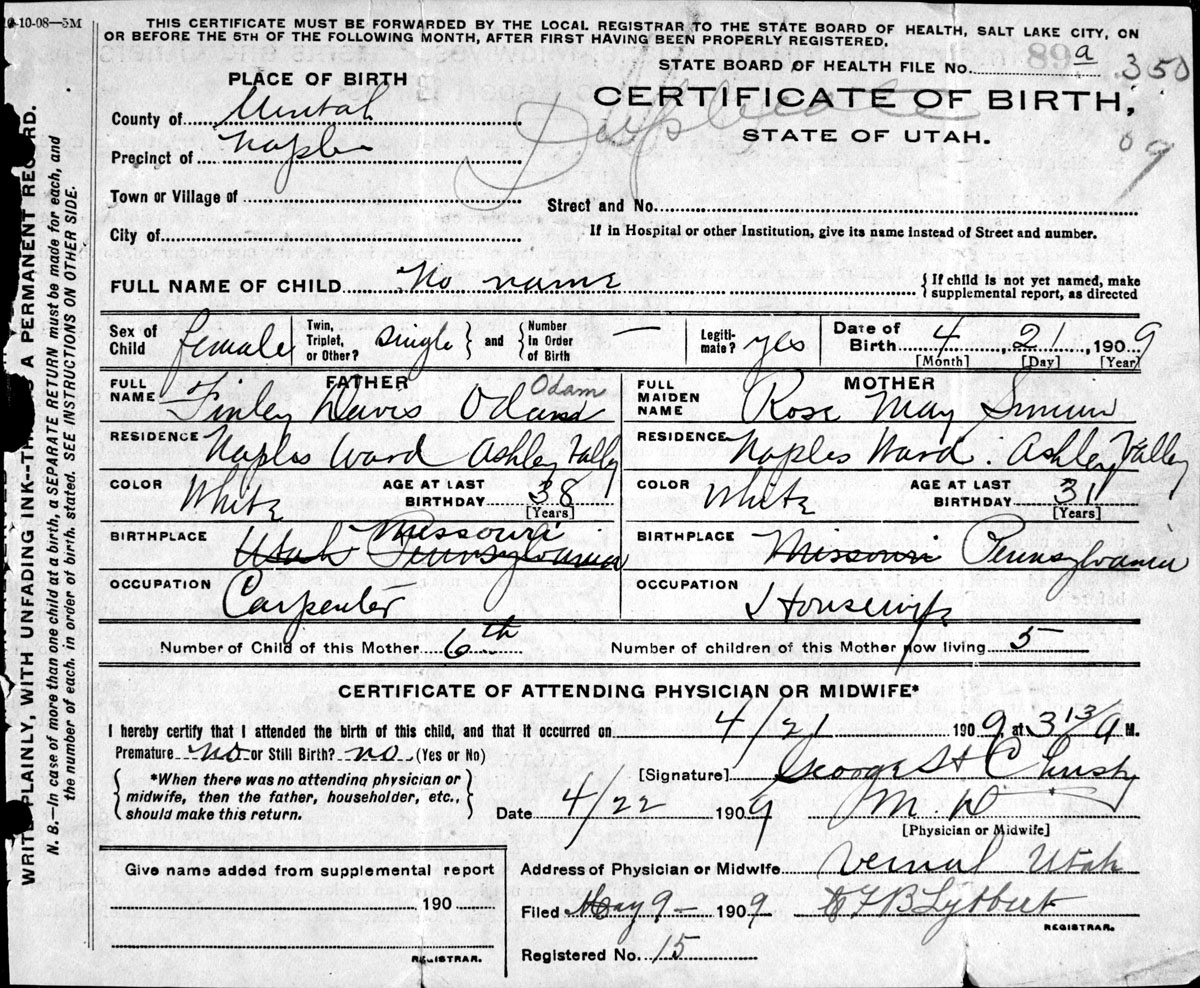 10-10-08—5M
THIS CERTIFICATE MUST BE FORWARDED BY THE LOCAL REGISTRAR TO THE STATE BOARD OF HEALTH, SALT LAKE CITY, ON
OR BEFORE THE 5TH OF THE FOLLOWING MONTH, AFTER FIRST HAVING BEEN PROPERLY REGISTERED.
STATE BOARD OF HEALTH FILE No. a 350
09
PLACE OF BIRTH
CERTIFICATE OF BIRTH,
STATE OF UTAH.
Duplicate
County of Uintah
Precinct of Naples
Town or Village of
Street and No.
City of
If in Hospital or other Institution, give its name instead of Street and number.
FULL NAME OF CHILD No name
{ If child is not yet named, make
supplemental report, as directed
Sex of Child female
Twin, Triplet, or Other? Single } and { Number in Order of Birth —
Legitimate? yes
Date of Birth 4, 21, 1909
[Month] [Day] [Year]
FATHER
FULL NAME Finley Davis Odam
MOTHER
FULL MAIDEN NAME Rose May
RESIDENCE Naples Ward Ashley Valley
RESIDENCE Naples Ward. Ashley Valley
COLOR White AGE AT LAST BIRTHDAY 38 [Years]
COLOR White AGE AT LAST BIRTHDAY 31 [Years]
BIRTHPLACE Utah Pennsylvania Missouri
BIRTHPLACE Missouri Pennsylvania
OCCUPATION Carpenter
OCCUPATION Housewife
Number of Child of this Mother 6th
Number of children of this Mother now living 5
CERTIFICATE OF ATTENDING PHYSICIAN OR MIDWIFE*
I hereby certify that I attended the birth of this child, and that it occurred on 4/21 1909, at 3 13/ A M.
Premature no or Still Birth? no (Yes or No)
{ *When there was no attending physician or
midwife, then the father, householder, etc.,
should make this return. }
[Signature] George St C Christy
M.D.
Date 4/22 1909
[Physician or Midwife]
Give name added from supplemental report
190
REGISTRAR.
Address of Physician or Midwife Vernal Utah
Filed May 9 — 1909
REGISTRAR.
Registered No. 15
WRITE PLAINLY, WITH UNFADING INK—THIS IS A PERMANENT RECORD.
N. B.—In case of more than one child at a birth, a SEPARATE RETURN must be made for each, and
the number of each, in order of birth, stated. SEE INSTRUCTIONS ON OTHER SIDE.